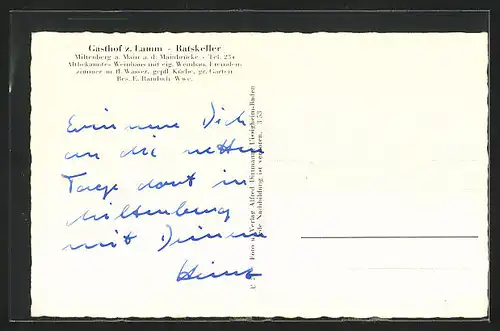 Gasthof z. Lamm - Ratskeller
Miltenberg a. Main a. d. Mainbrücke - Tel. 234
Altbekanntes Weinhaus mit eig. Weinbau, Fremden-
zimmer m. fl. Wasser, gepfl. Küche, gr. Garten
Bes. E. Wwe.
Erinnere Dich
an die netten
Tage dort in
Miltenberg
mit Deinem
Heinz
Foto u. Verlag Alfred Uissigheim-Baden
Jede Nachbildung ist verboten. 3 53